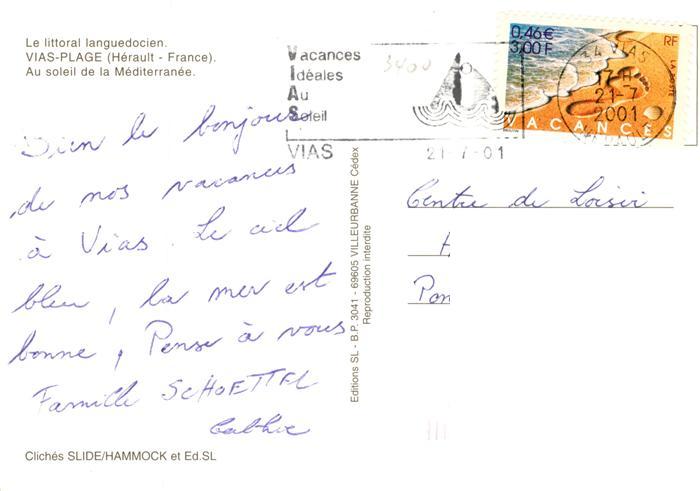 Le littoral languedocien.
VIAS-PLAGE (Hérault - France).
Au soleil de la Méditerranée.
Vacances
Idéales
Au
Soleil
VIAS
3400
21-7-01
0,46€
3,00 F
RF
LA POSTE
VACANCES
34 VIAS
17 H
21-7
2001
HERAULT
Bien le bonjour
de nos vacances
à Vias. Le ciel
bleu, la mer est
bonne, Pense à vous
Famille SCHOETTEL
Clichés SLIDE/HAMMOCK et Ed.SL
Editions SL - B.P. 3041 - 69605 VILLEURBANNE Cédex
Reproduction interdite
Centre de Loisir